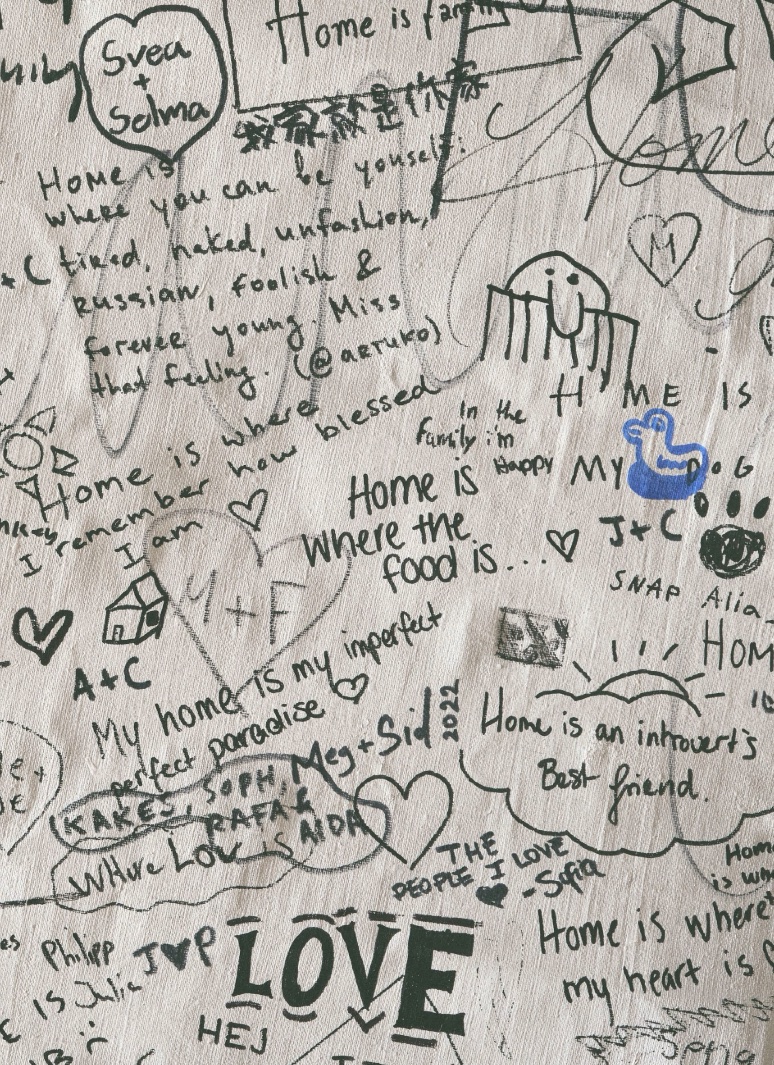 Svea
+
Selma
Home is family
Home is
where you can be youself:
tired, naked, unfashion,
Russian, foolish &
forever young. Miss
that feeling. (@ARTUKO)
+ C
M
H ME IS
MY DOG
In the
family i'm
Happy
Home is where
I remember how blessed
I am
Home is
Where the
food is...
J+C
SNAP Alia
HOM
M+F
A+C
My home is my imperfect
perfect paradise
Meg+Sid 2022
Home is an introvert's
Best friend.
KAKES, SOPH,
RAFA &
AIDA
Where Lov is
THE
PEOPLE I LOVE
- Sofia
Home
is
Home is where
my heart is
Philipp
IS Julia
J♥P
LOVE
HEJ